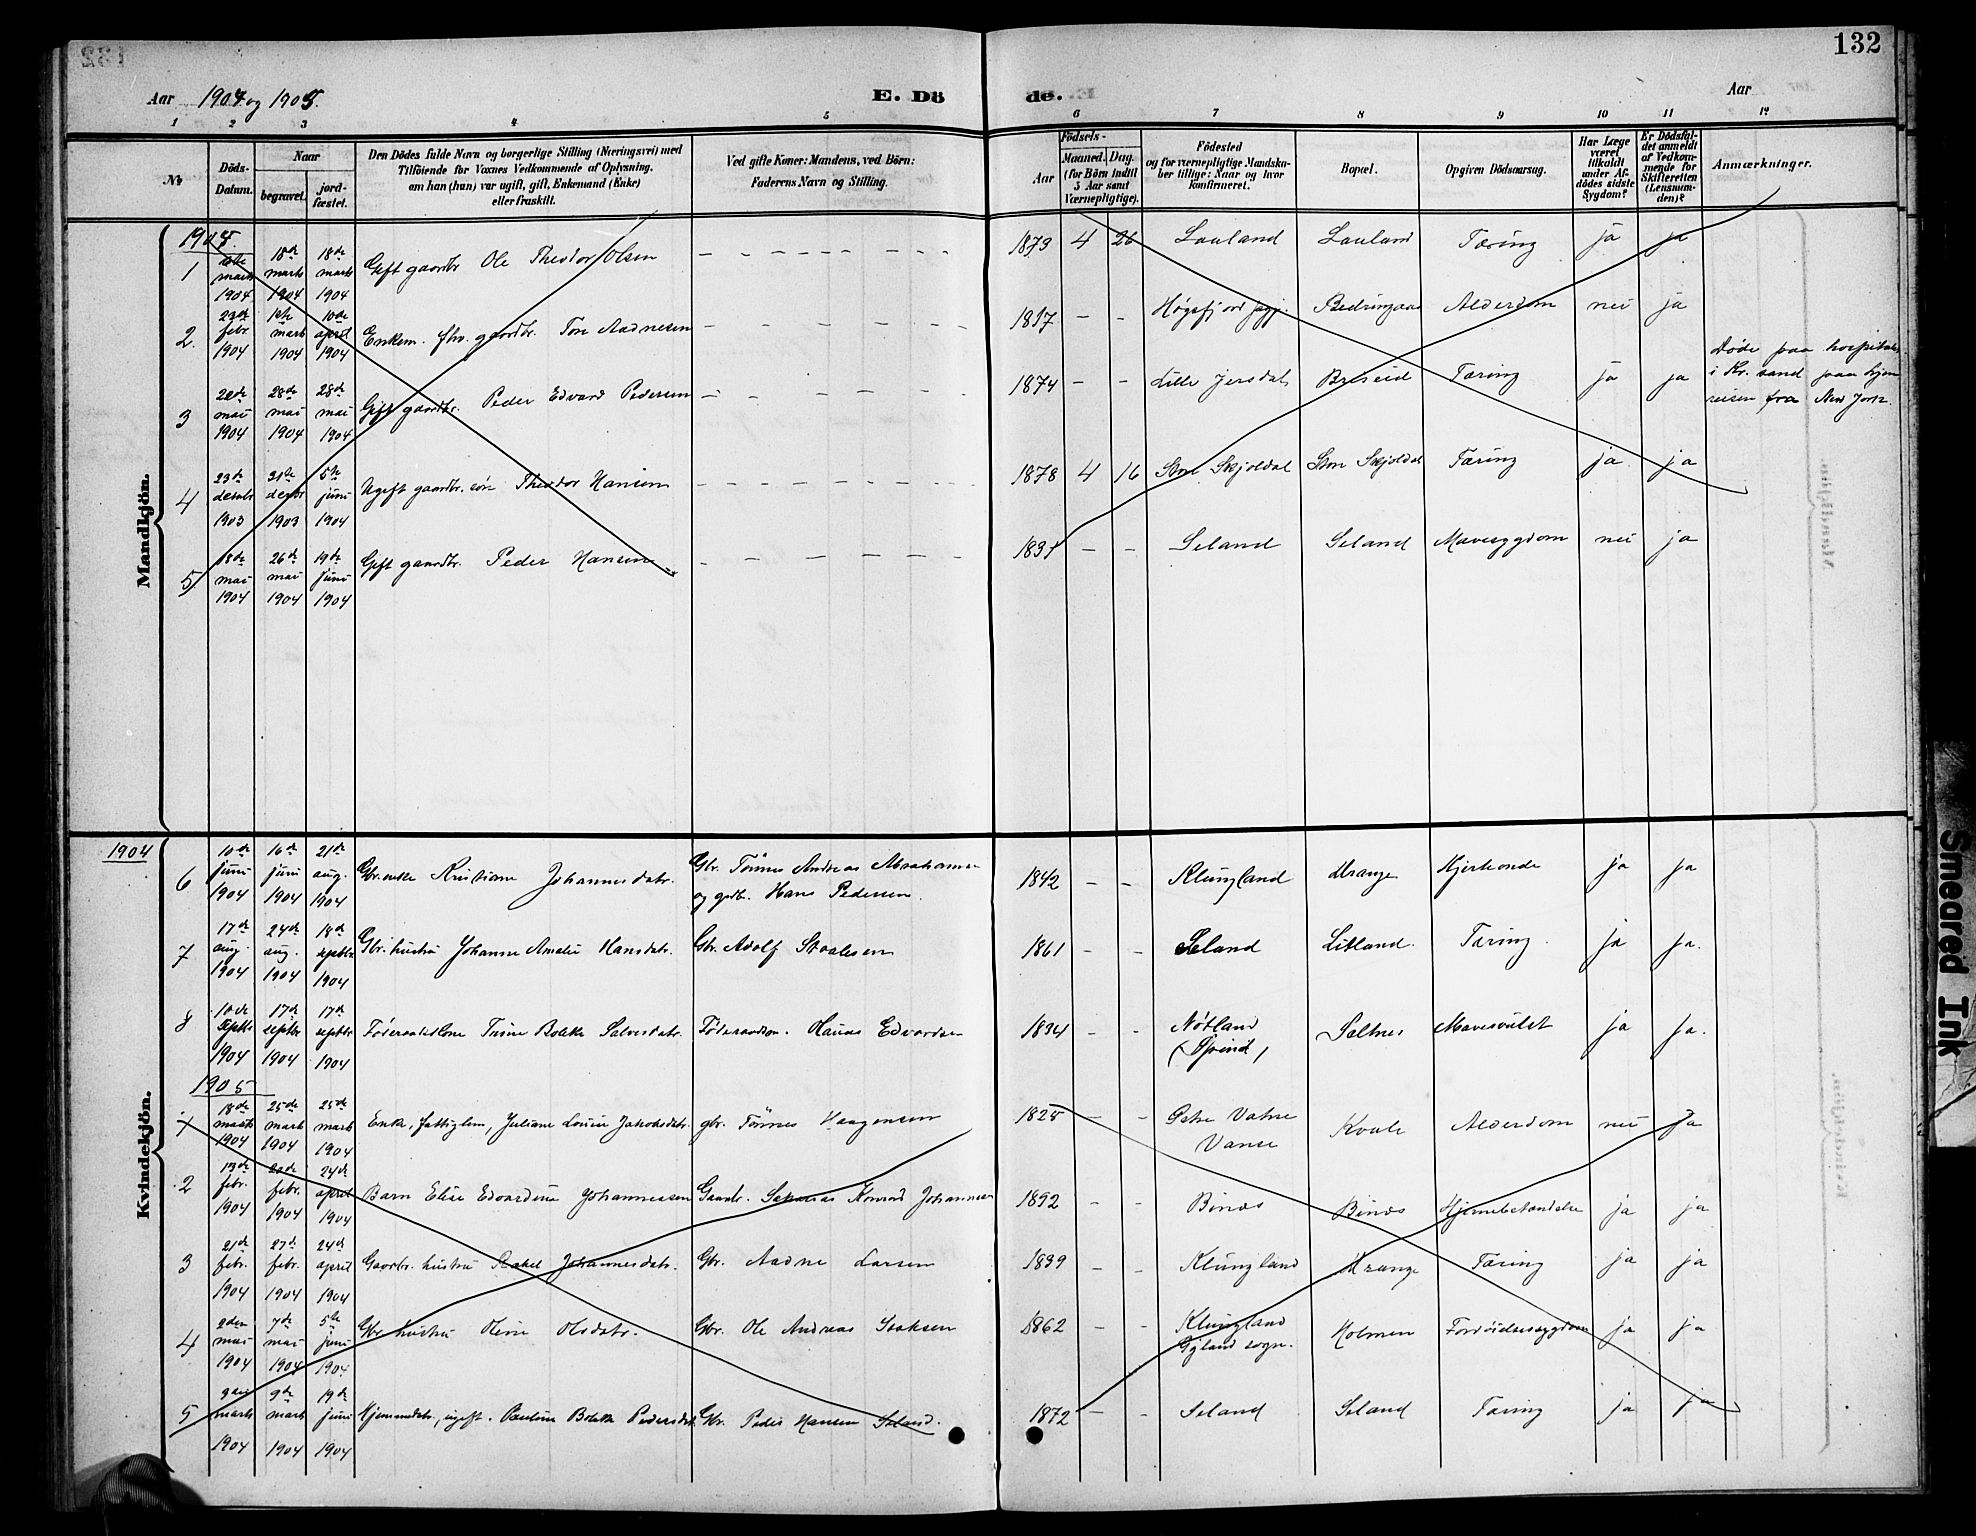 132
Aar 1904 og 1905.
E. Dö
de.
Aar
1 2 3 4 5 6 7 8 9 10 11 12
No
Döds-
Datum.
Naar
begravet.
jord-
fæstet.
Den Dödes fulde Navn og borgerlige Stilling (Næringsvei) med
Tilföiende for Voxnes Vedkommende af Oplysning,
om han (hun) var ugift, gift, Enkemand (Enke)
eller fraskilt.
Ved gifte Koner: Mandens, ved Börn:
Faderens Navn og Stilling.
Födsels-
Aar
Maaned. Dag.
(for Börn indtil
5 Aar samt
Værnepligtige).
Födested
og for værnepligtige Mandska-
ber tillige: Naar og hvor
konfirmeret.
Bopæl.
Opgiven Dödsaarsag.
Har Læge
været
tilkaldt
under Af-
dödes sidste
Sygdom?
Er Dödsfal-
det anmeldt
af Vedkom-
mende for
Skifteretten
(Lensman-
den)?
Anmærkninger.
Mandkjön.
1905.
1 marts 1904 18de marts 1904 18de marts 1904 Gift gaardbr. Ole Theodor Olsen 1879 4 26 Lauland Lauland Tæring ja ja
2. 23de febr. 1904 1ste marts 1904 10de april 1904 Enkem. fhv. gaardbr. Tore Aadnesen 1817 Høgsfjord pgj. Alderdom nei ja
3 mai 1904 28de mai 1904 28de mai 1904 Gift gaardbr. Peder Edvard Pedersen 1874 Lille Jersdal Briseid Tæring ja ja
Døde paa hospitalet
i Kr. sand paa hjem
reisen fra New York.
4 23de desbr 1903 31te desbr 1903 5te juni 1904 Ugift gaardbr. søn Theodor Hansen 1878 4 16 Store Skjoldal Store Skjoldal Tæring ja ja
5 18de mai 1904 26de mai 1904 19de juni 1904 Gift gaardbr. Peder Hansen Seland Seland Mavesygdom nei ja
Kvindekjön.
1904
6 10de juni 1904 16de juni 1904 21de aug. 1904 Gbr. enke Kristiane Johannesdatr. Gbr. Tönnes Andreas Abrahamsen
og gdbr. Hans Pedersen. 1842 Klungland Hrange Hjerteonde ja ja
7 17de aug. 1904 24de aug. 1904 18de septbr 1904 Gbr. hustru Johanne Amalie Hansdatr. Gbr. Adolf Staalesen 1861 Seland Litland. Tæring. ja ja.
8 10de septbr 1904 17de septbr 1904 17de septbr 1904 Trine Bolette Salvesdatr. Edvardsen 1834 Nötland
(Spind) Saltnes Mavesvulst ja ja.
1905
1 18de marts 1904 25de marts 1904 25de marts 1904 Enke, fattiglem, Juliane Louise Jakobsdatr. gbr. Tönnes Haagensen 1825 Östre Vatne
Vanse Kvale Alderdom nei ja
2 13de febr. 1904 20de febr. 1904 24de april 1904 Barn Elise Edvardine Johannessen Gaardbr. Konrad Johannesen 1892 Bínes Bines Hjernebetændelse ja ja
3 21de febr. 1904 27de febr. 1904 24de april 1904 Gaardbr. hustru Rakel Johannesdatr. Gbr. Aadne Larsen 1839 Klungland Hrange Tæring ja ja
4 2den mai 1904 7de mai 1904 5te juni 1904 Gbr hustru Oline Olsdatr. Gbr. Ole Andreas Isaksen 1862 Klungland
Gyland sogn. Holmen Fordöielsessygdom ja ja
5 marts 1904 9de marts 1904 19de juni 1904 Hjemmedatr., ugift. Pauline Bolette Pedersdatr. Gbr. Peder Hansen Seland. 1872 Seland Seland Tæring ja ja
Smeared Ink